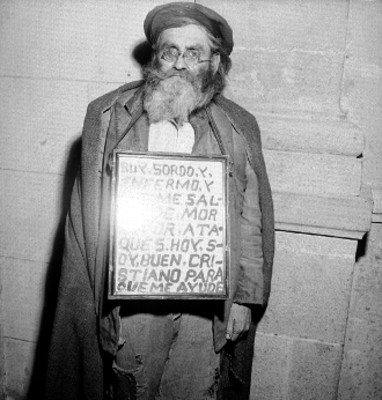 SUY. SORDO. Y,
ENFERMO, Y
ME SAL-
DE. MOR
ATA-
QUES. HOY. S-
OY. BUEN. CRI-
STIANO PARA
QUE ME AYUDE